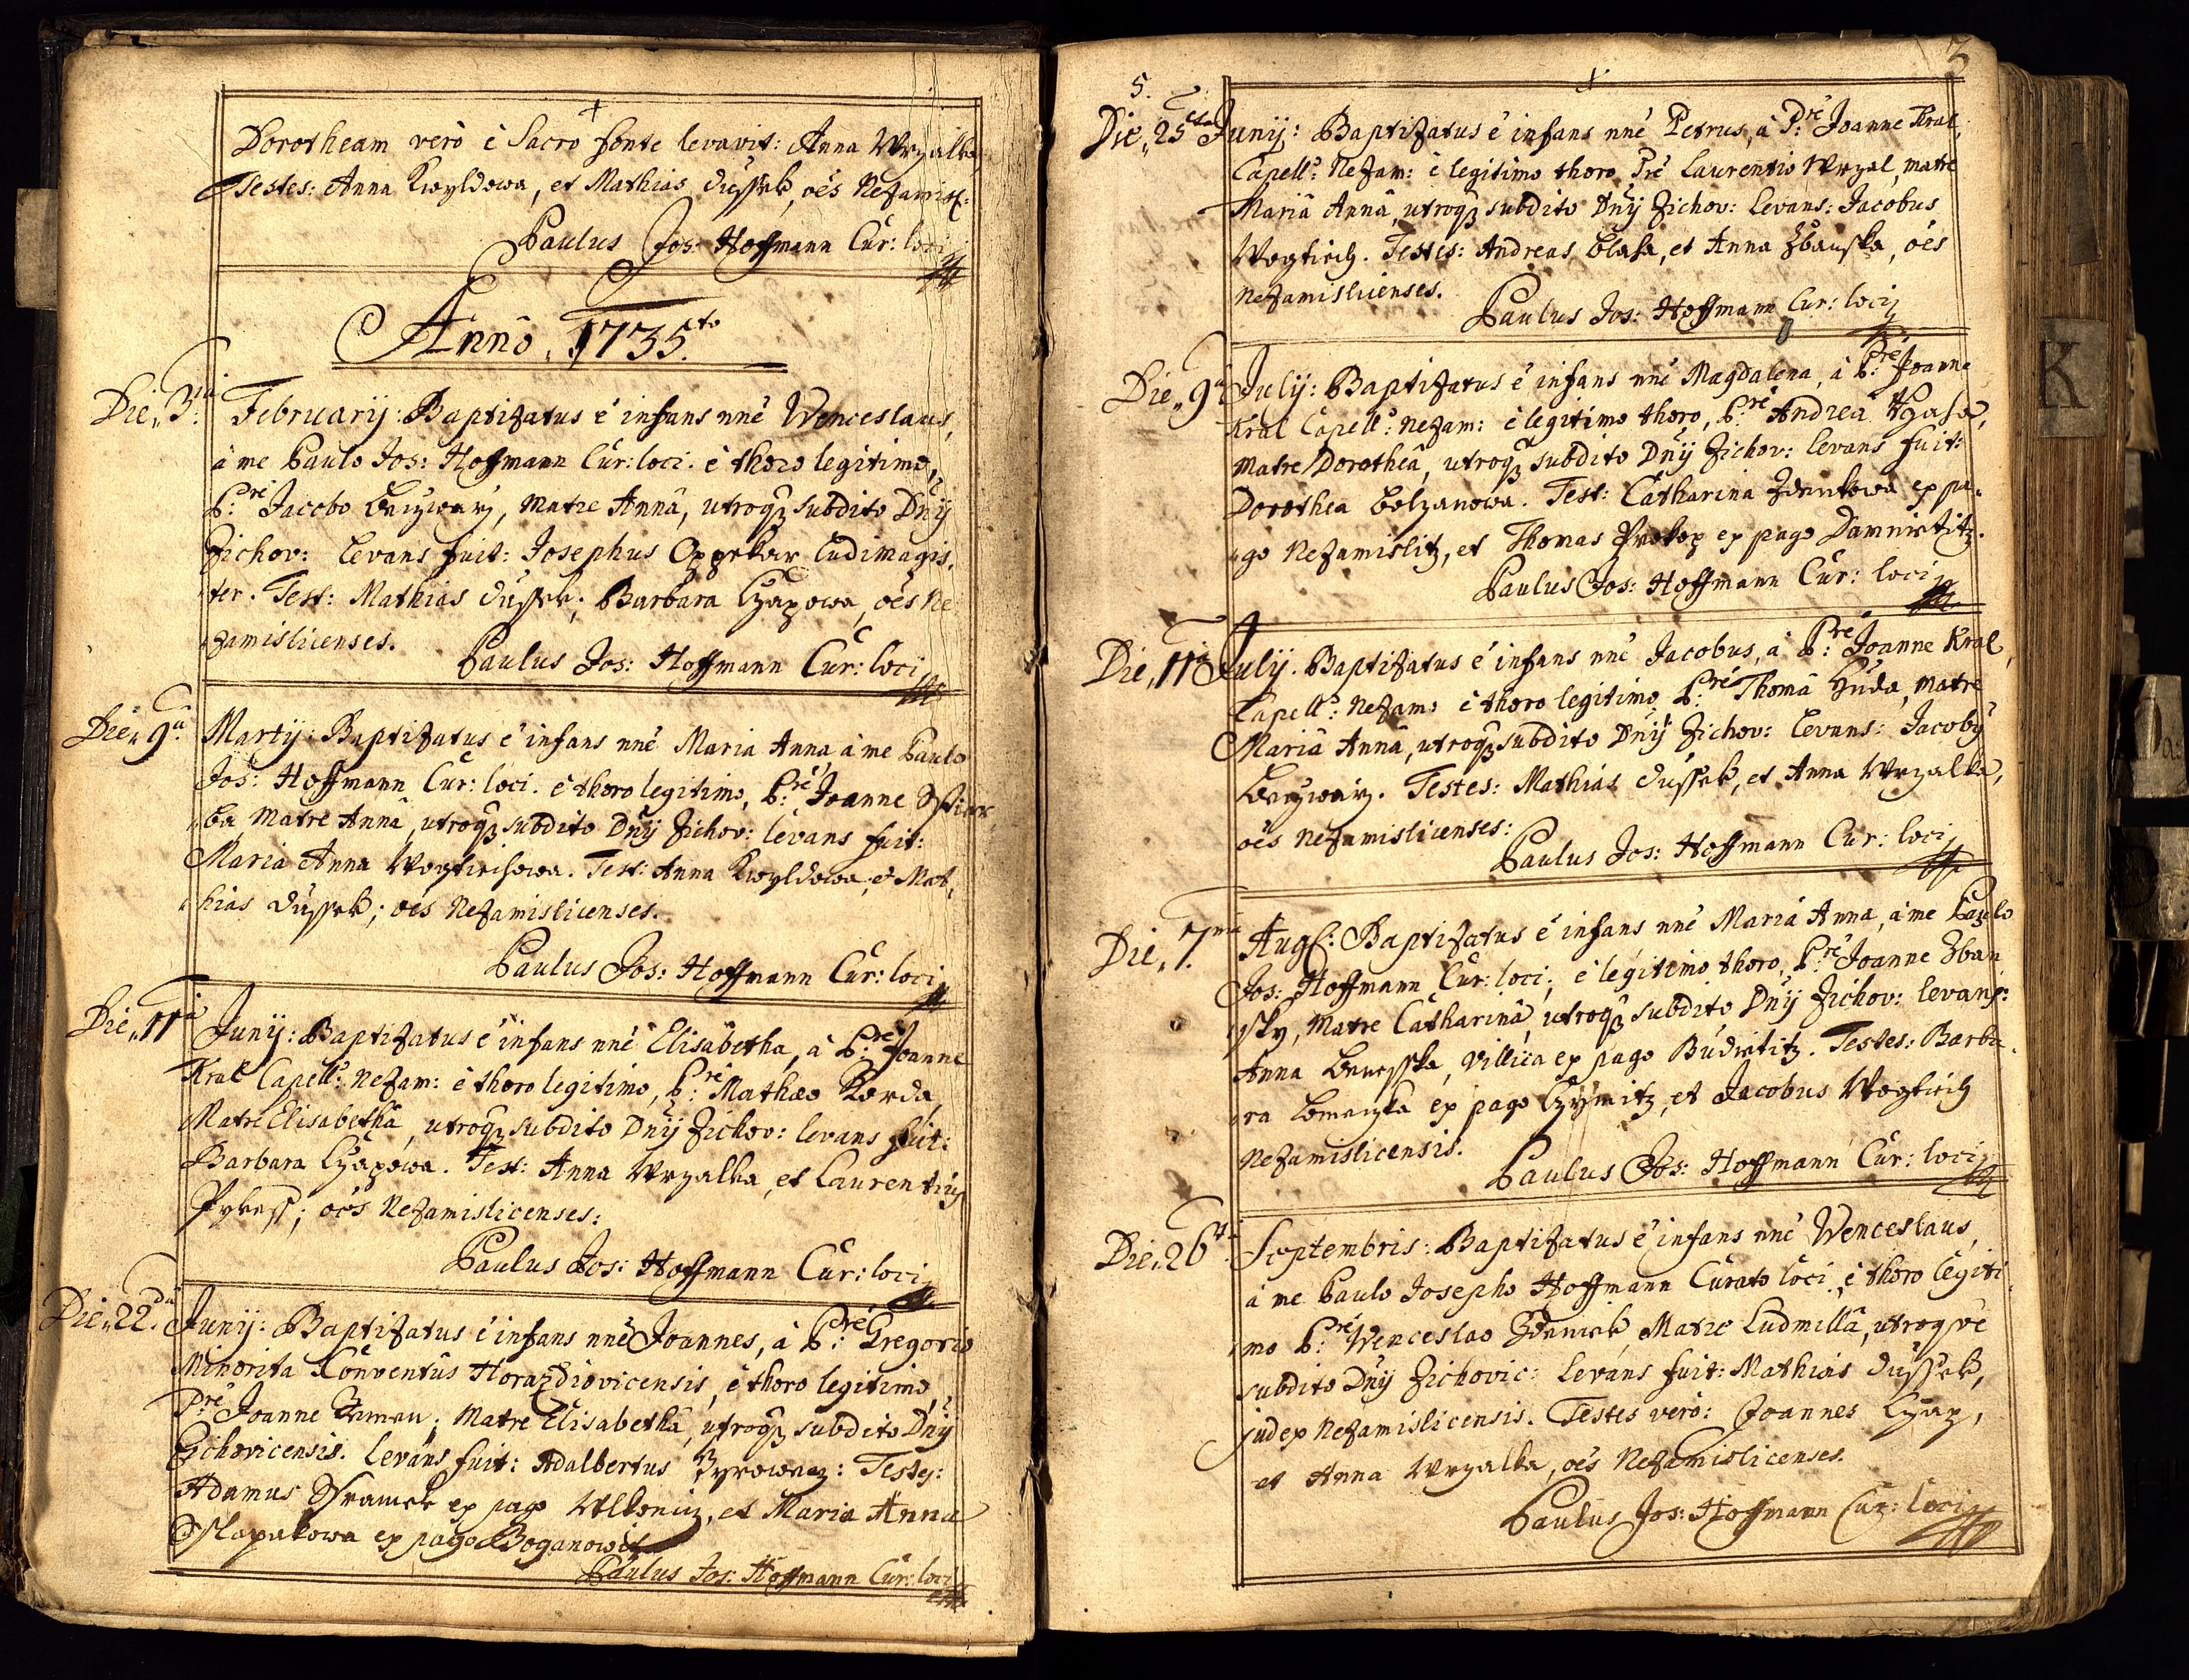 Dorotheam verò è Sacro fonte levavit: Anna Wrzalka,
Testes: Anna Kwyldowa, et Mathias Dussek, oēs Nezamisl:
Paulus Jos: Hoffmann Cur: loci
Annô 1735.to
Die 3.a Februarij: Baptizatus ē infans nnē Wenceslaus,
à me Paulo Jos: Hoffmann Cur: loci. è thoro legitimo,
P:re Jacobo, Matre Annâ, utroq3 subdito Dnÿ
Zichov: Levans fuit: Josephus ludimagis,
ter. Test: Mathias Dussek; Barbara Czapowa, oēs Ne
zamislicenses. Paulus Jos: Hoffmann Cur: loci
Die 9.a Martij: Baptizatus ē infans nnē Maria Anna, à me Paulo
Jos: Hoffmann Cur: loci. è thoro legitimo, P:re Joanne
ba, Matre Annâ, utroq3 subdito Dnÿ Zichov: levans fuit:
Maria Anna Wogtiechowa. Test: Anna Kwyldowa, et Mat,
hias Dussek; oēs Nezamislicenses.
Paulus Jos: Hoffmann Cur: loci
Die 11.a Junij: Baptizatus ē infans nnē Elisabetha, à P:re Joanne
Kral Capell: Nezam: è thoro legitimo, P:re Mathæo Korda,
Matre Elisabethâ, utroq3 subdito Dnÿ Zichov: levans fuit:
Barbara Czapowa. Test: Anna Wrzalka, et Laurentius
oēs Nezamislicenses:
Paulus Jos: Hoffmann Cur: loci
Die 22.da Junij: Baptizatus ē infans nnē Joannes, à P:re Gregorio
Minorita Conventûs Horazdiovicensis, è thoro legitimo,
P:re Joanne Zeman; Matre Elisabethâ, utroq3 subdito Dnÿ
Zichovicensis. Levans fuit: Adalbertus Testes:
Adamus ex pago et Maria Anna
ex pago Boganowitz
Paulus Jos: Hoffmann Cur: loci
2
5.
Die 25.ta Junij: Baptizatus ē infans nnē Petrus, à P:re Joanne Kral,
Capell: Nezam: è legitimo thoro P:re Laurentio Wrzal, matre
Mariâ Annâ, utroq3 subdito Dnÿ Zichov: Levans: Jacobus
Wogtiech. Testes: Andreas Blaha, et Anna Zbanska, oēs
Nezamislicenses.
Paulus Jos: Hoffmann Cur: loci
Die 9.a Julij: Baptizatus ē infans nnē Magdalena, à P:re Joanne
Kral Capell: Nezam: è legitimo thoro, P:re Andrea
Matre Dorotheâ, utroq3 subdito Dnÿ Zichov: levans fuit:
Dorothea Bolzanowa. Test: Catharina Zdenkowa ex pa,
go Nezamislitz, et Thomas Prokop ex pago Damnietitz.
Paulus Jos: Hoffmann Cur: loci
Die 11.a Julij. Baptizatus ē infans nnē Jacobus, à P:re Joanne Kral,
Capell: Nezam: è thoro legitimo P:re Thomâ Huda, Matre
Mariâ Annâ, utroq3 subdito Dnÿ Zichov: Levans: Jacobus
Testes: Mathias Dussek, et Anna Wrzalka,
oēs Nezamislicenses:
Paulus Jos: Hoffmann Cur: loci
Die 7.ma Aug: Baptizatus ē infans nnē Maria Anna, à me Paulo
Jos: Hoffmann Cur: loci, è legitimo thoro, P:re Joanne Zban
sky, Matre Catharinâ, utroq3 subdito Dnÿ Zichov: levans:
Anna Benesska, villica ex pago Budietitz. Testes: Barba
ra ex pago Czymitz, et Jacobus Wogtiech
Nezamislicensis.
Paulus Jos: Hoffmann Cur: loci
Die 26.ta Septembris: Baptizatus ē infans nnē Wenceslaus,
à me Paulo Josepho Hoffmann Curato loci, è thoro legiti
mo P:re Wenceslao Zdenek, Matre Ludmillâ, utroq3ve
subdito Dnÿ Zichovic: Levans fuit: Mathias Dussek,
judex Nezamislicensis. Testes verò: Joannes Czap,
et Anna Wrzalka, oēs Nezamislicenses.
Paulus Jos: Hoffmann Cur: loci
K